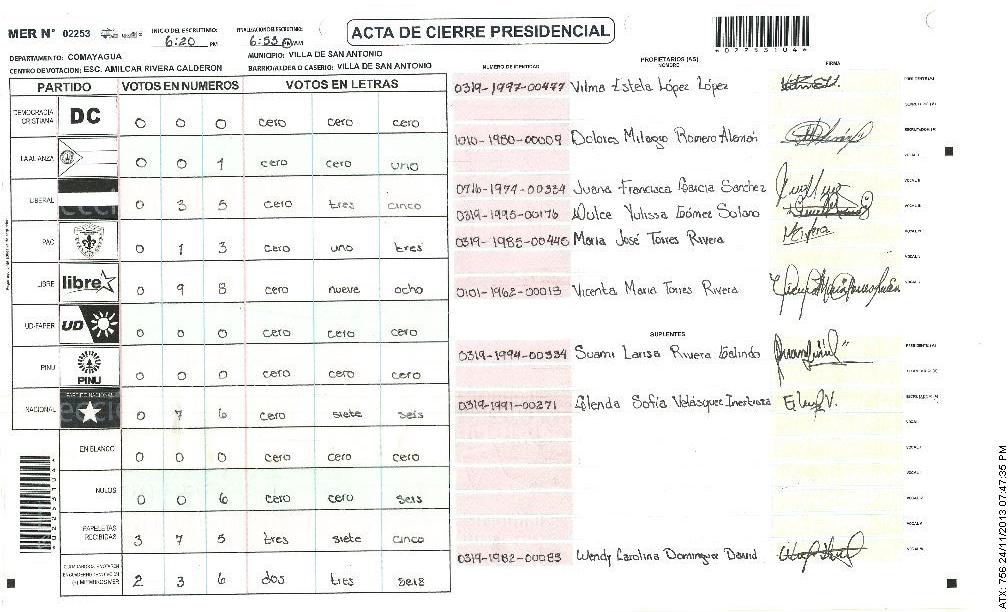 MER N° 02253
INICIO DEL ESCRUTINIO: 6:20 PM
FINALIZACION DEL ESCRUTINIO: 6:53 PM/AM
ACTA DE CIERRE PRESIDENCIAL
DEPARTAMENTO: COMAYAGUA
MUNICIPIO: VILLA DE SAN ANTONIO
CENTRO DE VOTACION: ESC. AMILCAR RIVERA CALDERON
BARRIO/ALDEA O CASERIO: VILLA DE SAN ANTONIO
PARTIDO VOTOS EN NUMEROS VOTOS EN LETRAS
DEMOCRACIA CRISTIANA DC 0 0 0 cero cero cero
LA ALIANZA 0 0 1 cero cero uno
LIBERAL 0 3 5 cero tres cinco
PAC 0 1 3 cero uno tres
LIBRE libre 0 9 8 cero nueve ocho
UD-FAPER UD 0 0 0 cero cero cero
PINU PINU 0 0 0 cero cero cero
NACIONAL PARTIDO NACIONAL 0 7 6 cero siete seis
EN BLANCO 0 0 0 cero cero cero
NULOS 0 0 6 cero cero seis
PAPELETAS RECIBIDAS 3 7 5 tres siete cinco
2 3 6 dos tres seis
NUMERO DE IDENTIDAD
PROPIETARIOS (AS)
NOMBRE
FIRMA
0319-1997-00477 Vilma Estela López López
1010-1980-00009 Dolores Milagro Romero Alemán
0716-1974-00334 Juana Francisca Garcia Sanchez
0319-1995-00176 Dulce Yulissa Gómez Solano
0319-1985-00446 Maria José Torres Rivera
0101-1962-00013 Vicenta Maria Torres Rivera
SUPLENTES
0319-1994-00334 Suami Larisa Rivera Galindo
0319-1991-00271 Glenda Sofia Velásquez Inestroza
0319-1982-00083 Wendy Carolina Dominguez David
PRESIDENTE(A)
SECRETARIO(A)
ESCRUTADOR(A)
VOCAL I
VOCAL II
VOCAL III
VOCAL IV
ATX: 756 24/11/2013 07:47:35 PM